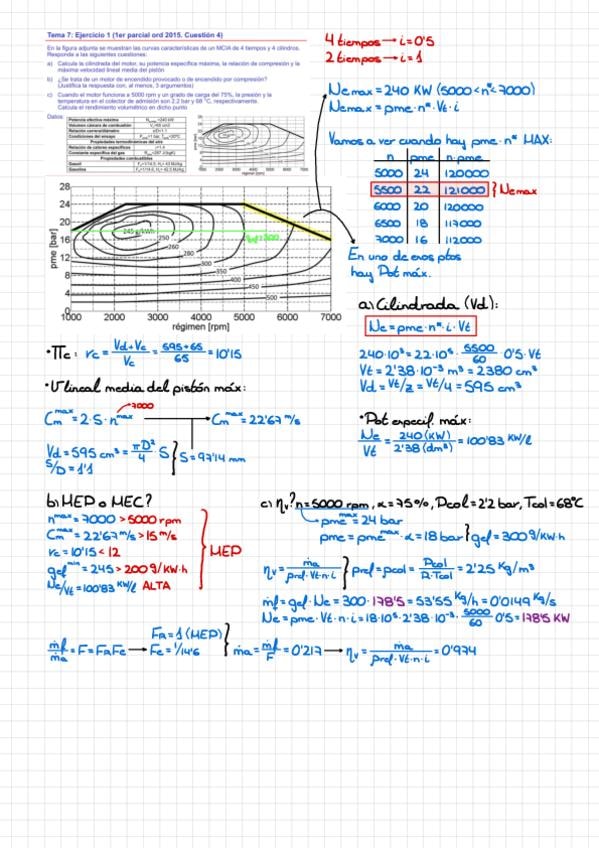 Tema 7: Ejercicio 1 (1er parcial ord 2015. Cuestión 4)
En la figura adjunta se muestran las curvas características de un MCIA de 4 tiempos y 4 cilindros.
Responde a las siguientes cuestiones:
a) Calcula la cilindrada del motor, su potencia específica máxima, la relación de compresión y la
máxima velocidad lineal media del pistón
b) ¿Se trata de un motor de encendido provocado o de encendido por compresión?
(Justifica la respuesta con, al menos, 3 argumentos)
c) Cuando el motor funciona a 5000 rpm y un grado de carga del 75%, la presión y la
temperatura en el colector de admisión son 2,2 bar y 68 °C, respectivamente.
Calcula el rendimiento volumétrico en dicho punto
Datos:
Potencia efectiva máxima
Volumen cámara de combustión
Relación carrera/diámetro
Condiciones del ensayo
Propiedades termodinámicas del aire
Relación de calores específicos
Constante específica del gas
Propiedades combustibles
Gasoil
Gasolina
4 tiempos → i=0'5
2 tiempos → i=1
Nemax = 240 KW (5000 < n* < 7000)
Nemax = pme · n* · Vt · i
Vamos a ver cuando hay pme · n* MAX:
n pme n·pme
5000 24 120000
5500 22 121000 } Nemax
6000 20 120000
6500 18 117000
7000 16 112000
En uno de esos ptos
hay Pot máx.
pme [bar]
28
24
20
16
12
8
4
0
245 g/kWh
250
260
280
300
350
400
450
500
1000 2000 3000 4000 5000 6000 7000
régimen [rpm]
a) Cilindrada (Vd):
Ne = pme · n* · i · Vt
240·10³ = 22·10⁵ · 5500/60 · 0'5 · Vt
Vt = 2'38·10⁻³ m³ = 2380 cm³
Vd = Vt/z = Vt/4 = 595 cm³
· Πc: rc = Vd+Vc/Vc = 595+65/65 = 10'15
· U lineal media del pistón máx:
7000
Cm^max = 2·S·n^max → Cm^max = 22'67 m/s
Vd = 595 cm³ = πD²/4 · S
S/D = 1'1 } S = 97'14 mm
· Pot especif. máx:
Ne/Vt = 240 (KW)/2'38 (dm³) = 100'83 KW/l
b) MEP o MEC?
n^max = 7000 > 5000 rpm
Cm^max = 22'67 m/s > 15 m/s
rc = 10'15 < 12
gef^min = 245 > 200 g/KW·h
Ne/Vt = 100'83 KW/l ALTA
} MEP
c) ηv? n = 5000 rpm, α = 75%, Pcol = 2'2 bar, Tcol = 68°C
pme^max = 24 bar
pme = pme^max · α = 18 bar } gef = 300 g/KW·h
ηv = ṁa/ρref·Vt·n·i } ρref = ρcol = Pcol/R·Tcol = 2'25 Kg/m³
ṁf = gef · Ne = 300 · 178'5 = 53'55 Kg/h = 0'0149 Kg/s
Ne = pme · Vt · n · i = 18·10⁵ · 2'38·10⁻³ · 5000/60 0'5 = 178'5 KW
ṁf/ṁa = F = FR Fe → FR = 1 (MEP)
Fe = 1/14'6 } ṁa = ṁf/F = 0'217 → ηv = ṁa/ρref·Vt·n·i = 0'974